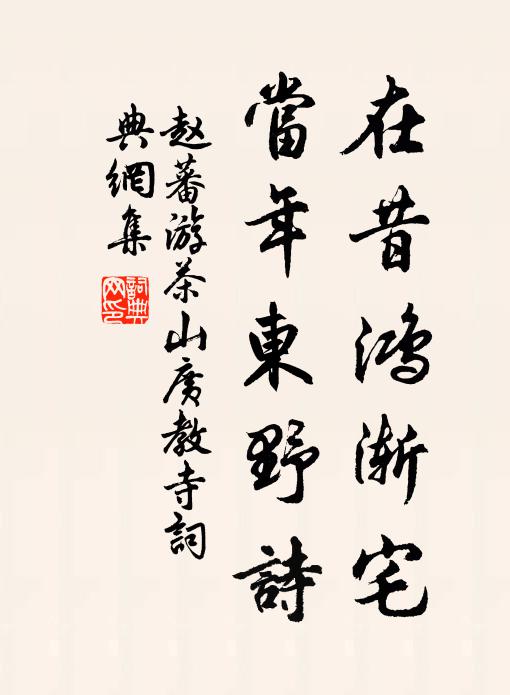 在昔鴻漸宅
當年東野詩
赵蕃游茶山廣教寺詞
典網集
詞典网印